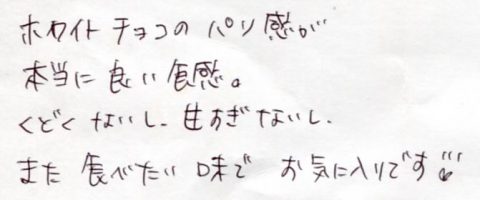 ホワイトチョコの パリ感が
本当に良い食感。
くどくないし、甘すぎないし、
また食べたい味で お気に入りです!!!